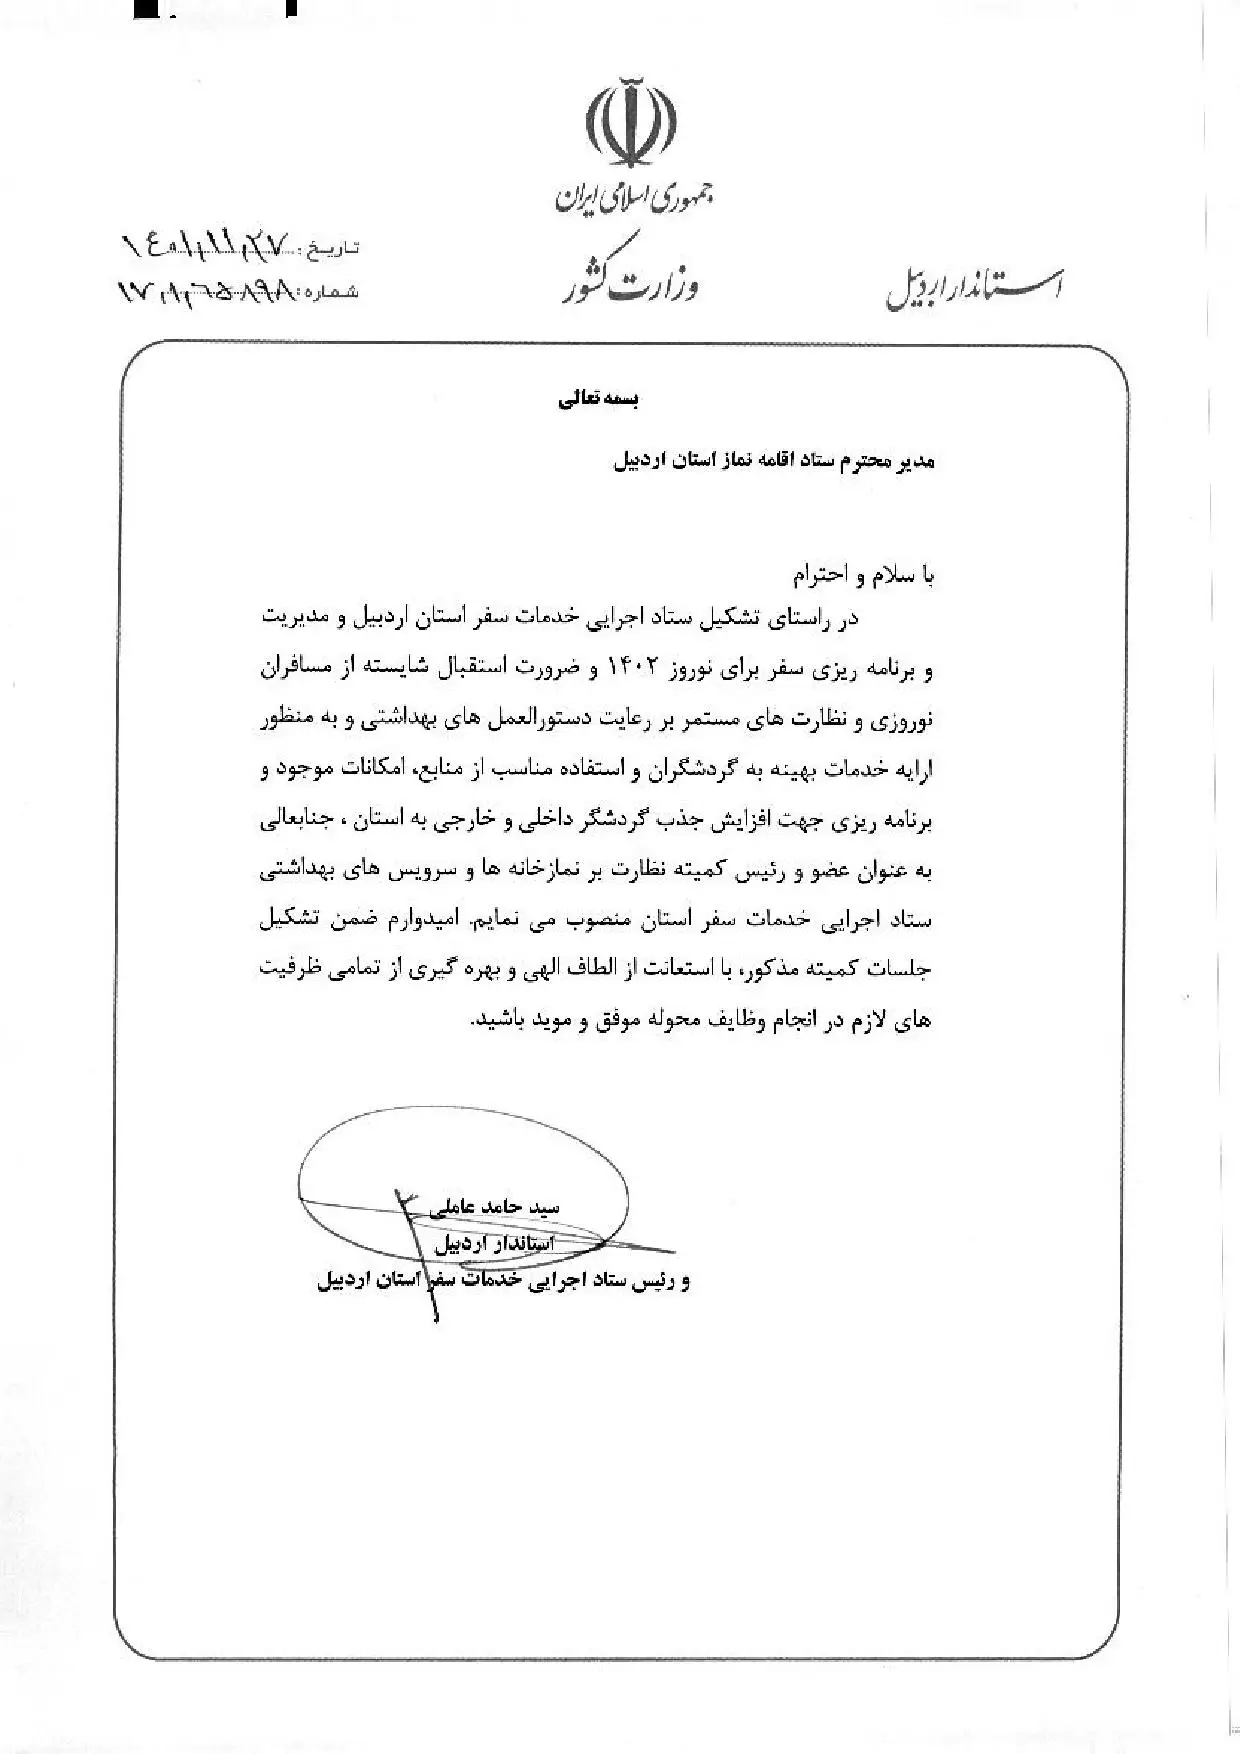 جمهوری اسلامی ایران
وزارت کشور
استاندار اردبیل
تاریخ: ۱۴۰۱,۱۱,۲۷
شماره: ۱۷,۱,۶۵۸۹۸
بسمه تعالی
مدیر محترم ستاد اقامه نماز استان اردبیل
با سلام و احترام
در راستای تشکیل ستاد اجرایی خدمات سفر استان اردبیل و مدیریت
و برنامه ریزی سفر برای نوروز ۱۴۰۲ و ضرورت استقبال شایسته از مسافران
نوروزی و نظارت های مستمر بر رعایت دستورالعمل های بهداشتی و به منظور
ارایه خدمات بهینه به گردشگران و استفاده مناسب از منابع، امکانات موجود و
برنامه ریزی جهت افزایش جذب گردشگر داخلی و خارجی به استان ، جنابعالی
به عنوان عضو و رئیس کمیته نظارت بر نمازخانه ها و سرویس های بهداشتی
ستاد اجرایی خدمات سفر استان منصوب می نمایم. امیدوارم ضمن تشکیل
جلسات کمیته مذکور، با استعانت از الطاف الهی و بهره گیری از تمامی ظرفیت
های لازم در انجام وظایف محوله موفق و موید باشید.
سید حامد عاملی
استاندار اردبیل
و رئیس ستاد اجرایی خدمات سفر استان اردبیل